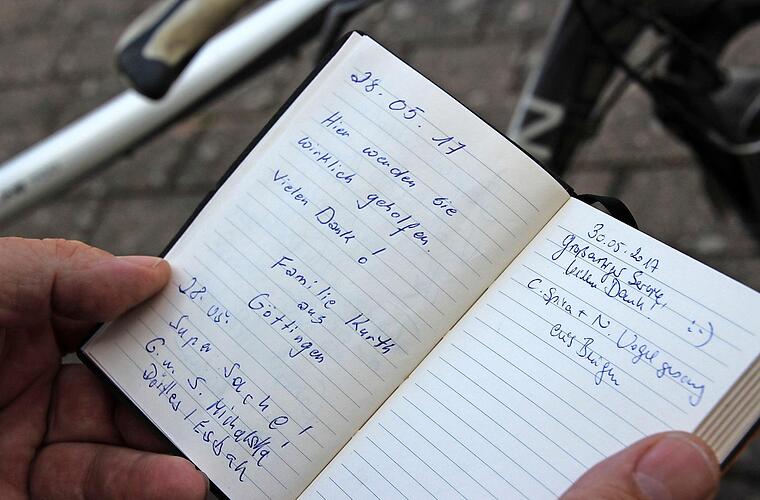 28. 05. 17
Hier werden Sie
wirklich geholfen.
Vielen Dank!
Familie Kurth
aus
Göttingen
28. 05.
Supa Sache!
G. u. S. Michalska
30.05.2017
Großartiger Service,
Vielen Dank! :-)
C. Spira + N. Vogelgesang
aus
N